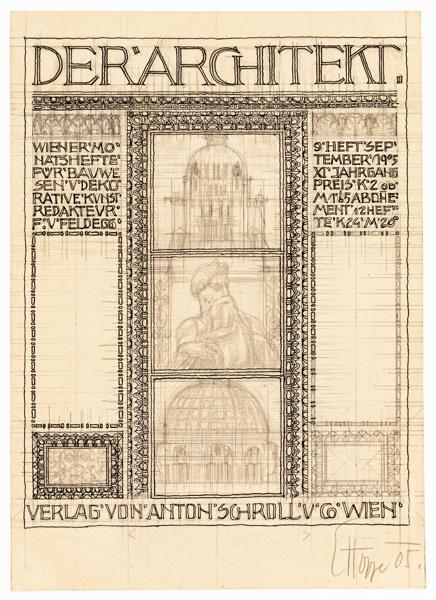 DER ARCHITEKT.
WIENER MO
NATSHEFTE
FÜR BAUWE
SEN U DEKO
RATIVE KUNST
REDAKTEUR
F. V. FELDEGG
9 HEFT SEP
TEMBER 1905
XI JAHRGANG
PREIS K 2 00
M 1.65 ABONE
MENT 12 HEF
TE K 24 M 20
VERLAG VON ANTON SCHROLL U CO WIEN
EHoppe 05.